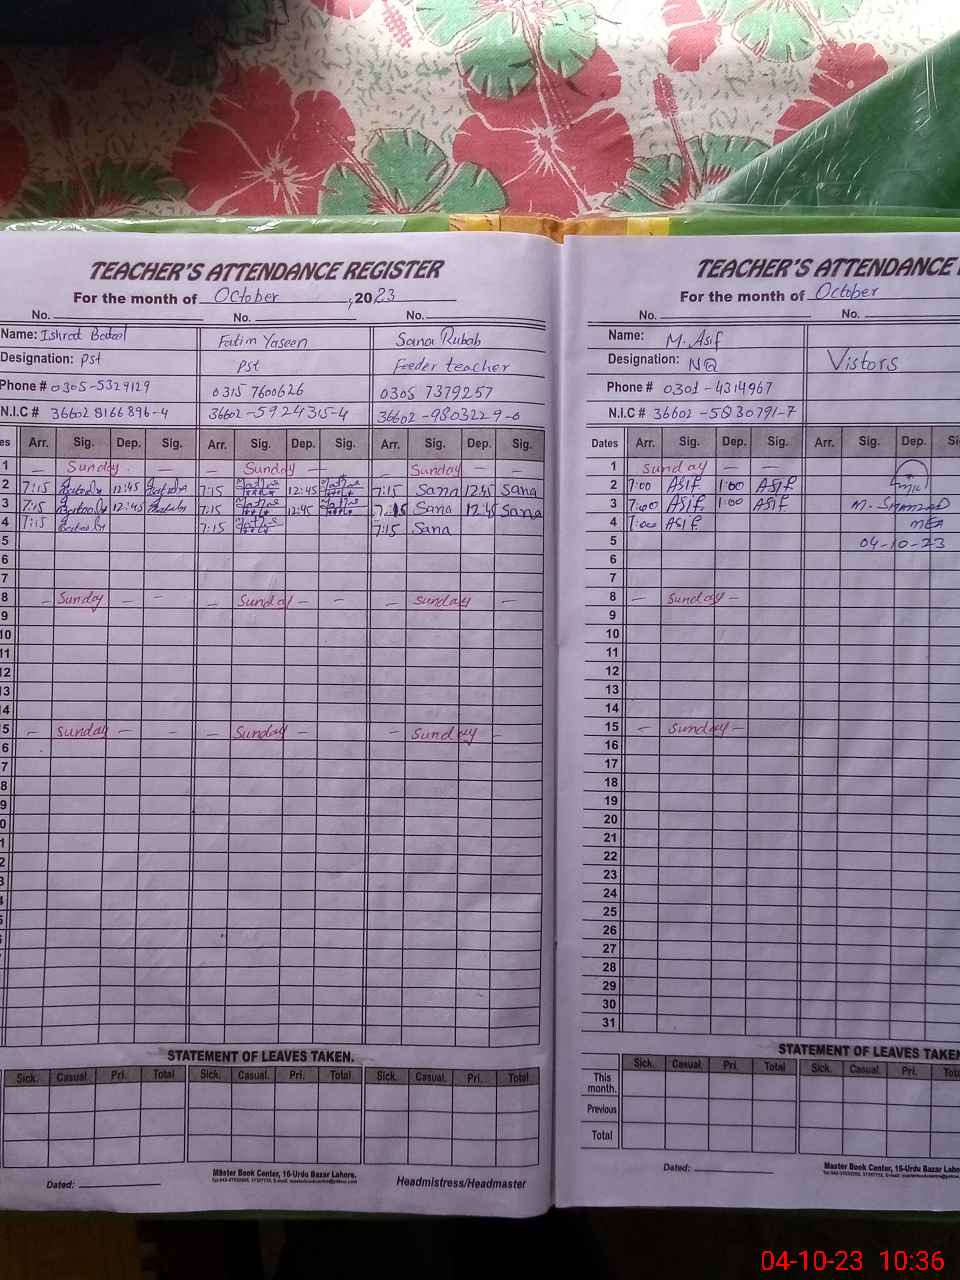 TEACHER'S ATTENDANCE REGISTER
For the month of October, 2023
No. No. No.
Name: Ishrat Batool Fatim Yaseen Sana Rubab
Designation: Pst Pst Feeder teacher
Phone # 0305-5329129 0315 7600626 0305 7379257
N.I.C # 36602 8166896-4 36602-5924315-4 36602-9803229-0
es Arr. Sig. Dep. Sig. Arr. Sig. Dep. Sig. Arr. Sig. Dep. Sig.
1 – Sunday – – Sunday – Sunday –
2 7:15 12:45 7:15 12:45 7:15 Sana 12:45 Sana
3 7:15 Batool 12:45 7:15 12:45 7:15 Sana 12:45 Sana
4 7:15 Batool 7:15 7:15 Sana
5
6
7
8 – Sunday – – – Sunday – – – Sunday –
9
10
11
12
13
14
5 – Sunday – – – Sunday – – – Sunday –
6
7
8
9
0
1
2
3
4
5
STATEMENT OF LEAVES TAKEN.
Sick. Casual. Pri. Total Sick. Casual. Pri. Total Sick. Casual. Pri. Total
Master Book Center, 16-Urdu Bazar Lahore.
Dated: Headmistress/Headmaster
TEACHER'S ATTENDANCE
For the month of October
No. No.
Name: M. Asif
Designation: NQ Vistors
Phone # 0301-4314967
N.I.C # 36602-5830791-7
Dates Arr. Sig. Dep. Sig. Arr. Sig. Dep. Si
1 Sunday – –
2 7:00 Asif 1:00 Asif
3 7:00 Asif 1:00 Asif M. SHAHZAD
4 7:00 Asif MEA
5 04-10-23
6
7
8 – Sunday –
9
10
11
12
13
14
15 – Sunday –
16
17
18
19
20
21
22
23
24
25
26
27
28
29
30
31
STATEMENT OF LEAVES TAKEN
Sick. Casual. Pri. Total Sick. Casual. Pri.
This month.
Previous
Total
Dated: Master Book Center, 16-Urdu Bazar Laho
04-10-23 10:36